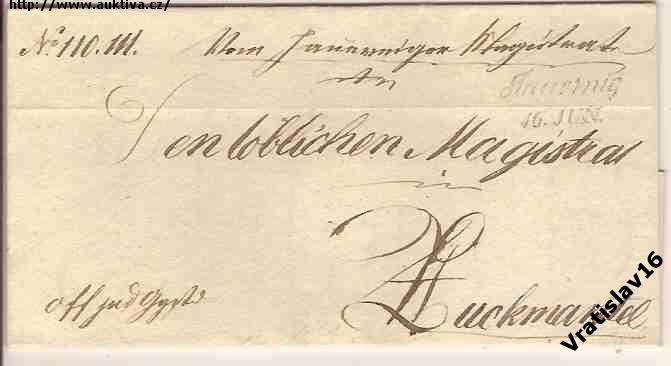 http://www.auktiva.cz/
No 110. M. Vom Jauerniger Magistrat
An
Jauernig
16. JUN.
Den löblichen Magistrat
in
Zuckmantel
Vratislav16